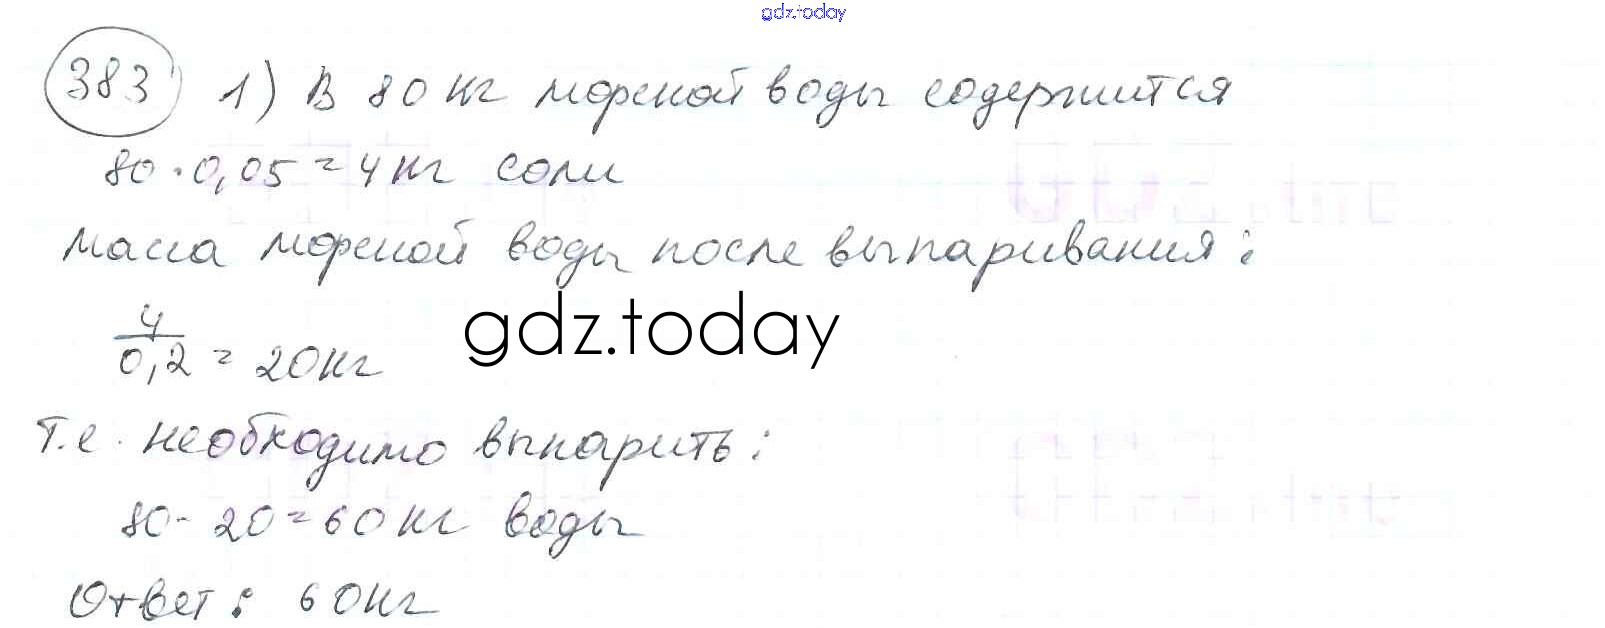 gdz.today
383 1) В 80 кг морской воды содержится
80 · 0,05 = 4 кг соли
масса морской воды после выпаривания:
4/0,2 = 20 кг
gdz.today
т.е. необходимо выпарить:
80 - 20 = 60 кг воды
Ответ: 60 кг